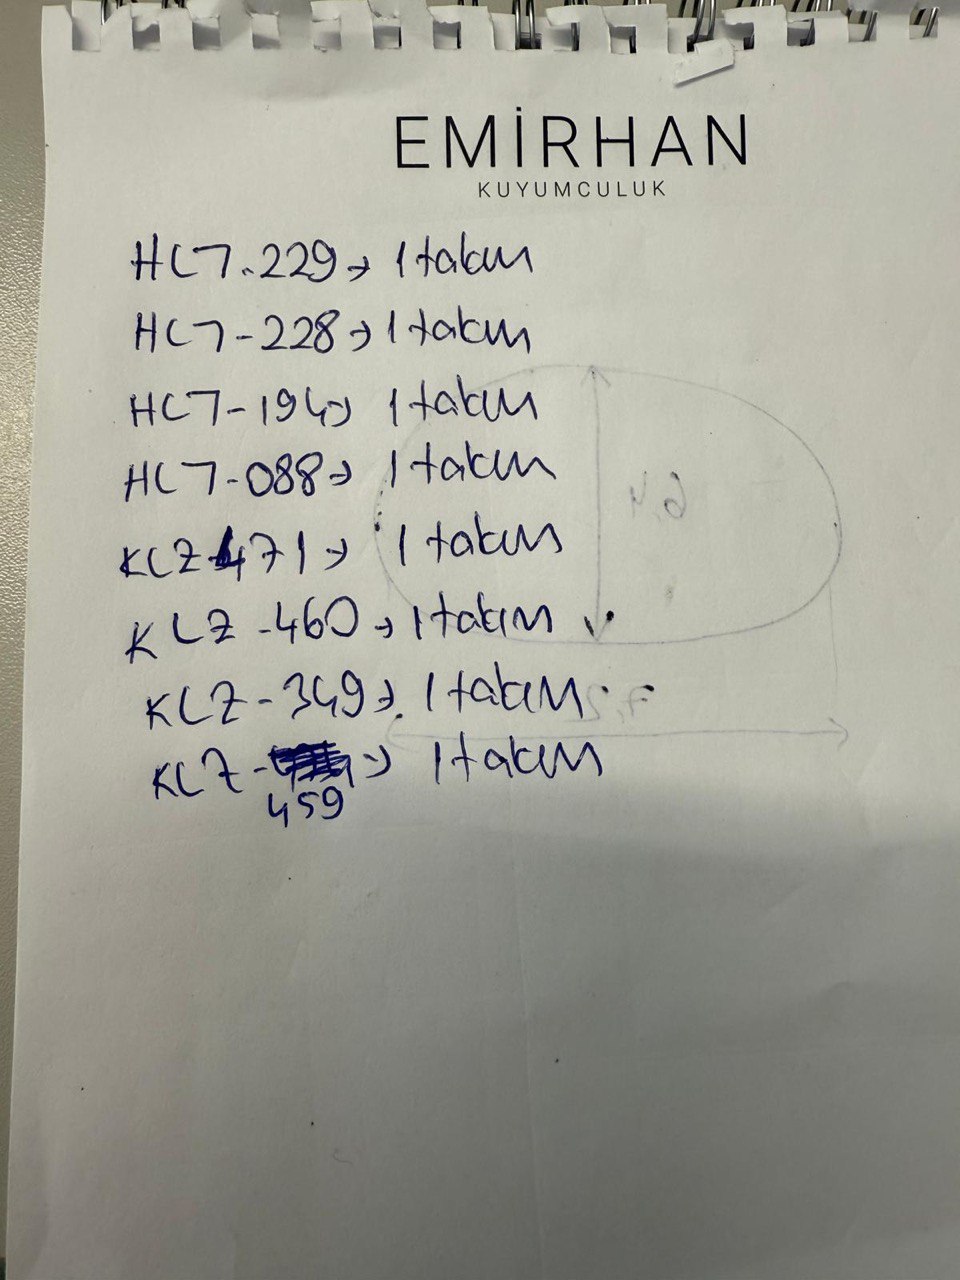 EMİRHAN
KUYUMCULUK
HC7-229 → 1 takım
HC7-228 → 1 takım
HC7-194 → 1 takım
HC7-088 → 1 takım
KLZ-471 → 1 takım
KLZ-460 → 1 takım
KLZ-349 → 1 takım
KLZ- → 1 takım
459